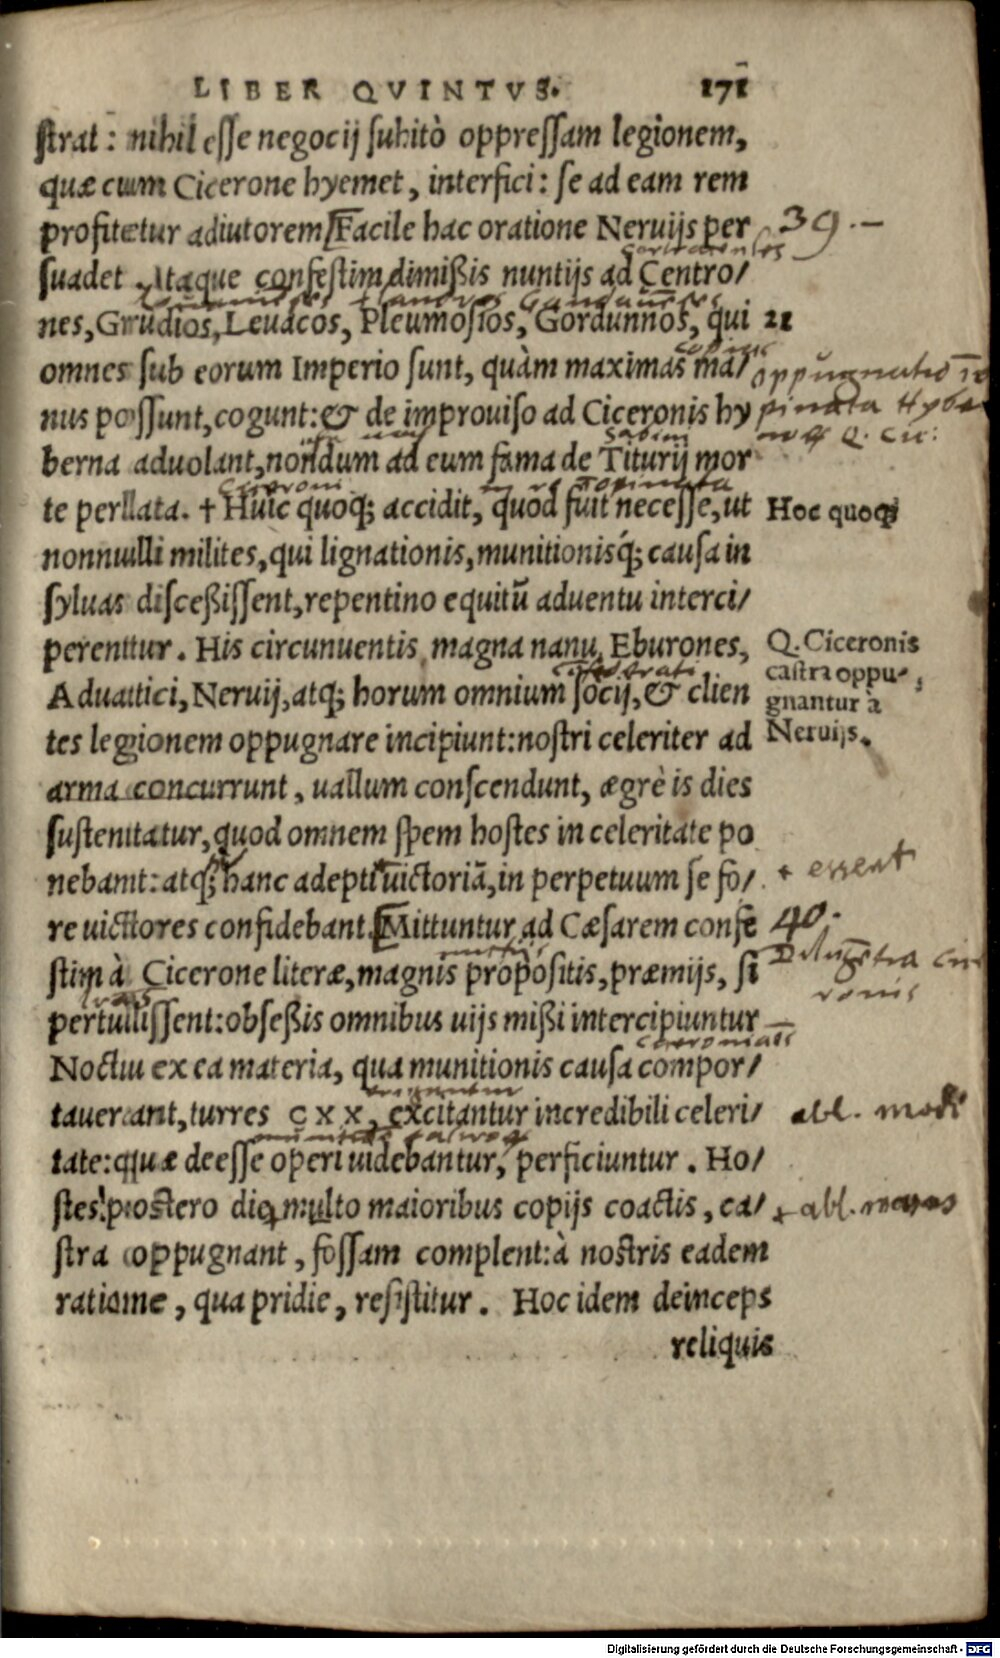 LIBER QVINTVS. 171
strat: nihil esse negocij subitò oppressam legionem,
quæ cum Cicerone hyemet, interfici: se ad eam rem
profitetur adiutorem. Facile hac oratione Neruijs per
39.—
suadet. Itaque confestim dimißis nuntijs ad Centro/
nes, Grudios, Leuacos, Pleumosios, Gordunnos, qui
21
omnes sub eorum Imperio sunt, quàm maximas ma/
nus possunt, cogunt: & de improuiso ad Ciceronis hy
oppugnatio
Q. Cic:
berna aduolant, nondum ad eum fama de Titurij mor
te perllata. † Huic quoq; accidit, quod fuit necesse, ut
Hoc quoq;
nonnulli milites, qui lignationis, munitionisq́; causa in
syluas disceßissent, repentino equitū aduentu interci/
perenttur. His circunuentis, magna nanu, Eburones,
Aduattici, Neruij, atq; horum omnium socij, & clien
tes legionem oppugnare incipiunt: nostri celeriter ad
Q. Ciceronis
castra oppu-
gnantur à
Neruijs.
arma concurrunt, uallum conscendunt, ægrè is dies
sustenitatur, quod omnem spem hostes in celeritate po
nebamt: atq; hanc adepti uictoriã, in perpetuum se fo/
+ essent
re uicttores confidebant. Mittuntur ad Cæsarem confe
40.
stim à Cicerone literæ, magnis propositis, præmijs, si
pertulissent: obseßis omnibus uijs mißi intercipiuntur
Noctu ex ea materia, qua munitionis causa compor/
tauerant, turres CXX, excitantur incredibili celeri/
abl. modi
tate: quæ deesse operi uidebantur, perficiuntur. Ho/
stes postero die multo maioribus copijs coactis, ca/
+ abl.
stra oppugnant, fossam complent: à nostris eadem
ratione, qua pridie, resistitur. Hoc idem deinceps
reliquis
Digitalisierung gefördert durch die Deutsche Forschungsgemeinschaft - DFG